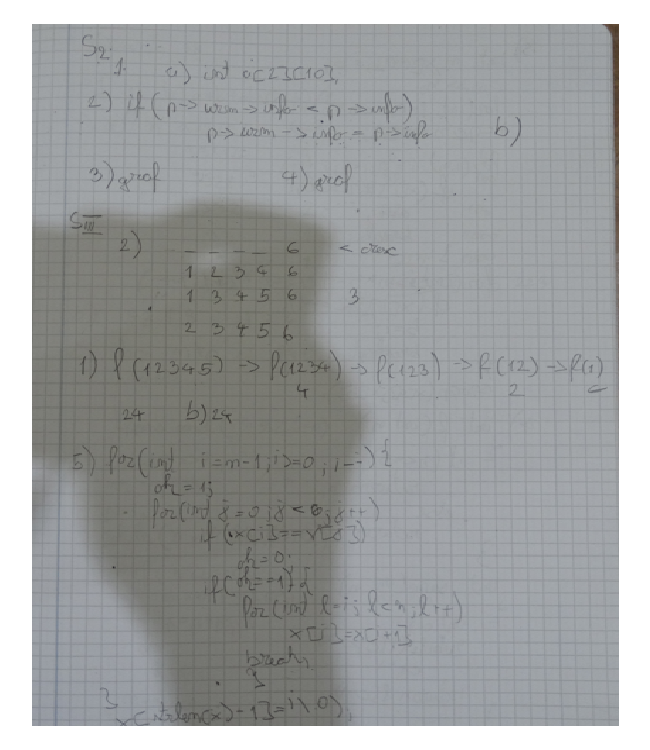 S2.
1. a) int a[2][10];
2) if (p->urm->info < p->info)
p->urm->info = p->info b)
3) graf 4) graf
SIII
2) _ _ _ _ 6
1 2 3 4 6
1 3 4 5 6 3
2 3 4 5 6
1) f(12345) -> f(1234) -> f(123) -> f(12) -> f(1)
4 2
24 b) 24
5) for(int i=n-1; i>=0; i--) {
ok=1;
for(int j=0; j<
if (x[i]==v[j])
ok=0;
if(ok==1) {
for(int l=i; l<n; l++)
break;
}
}
x[strlen(x)-1]='\0';